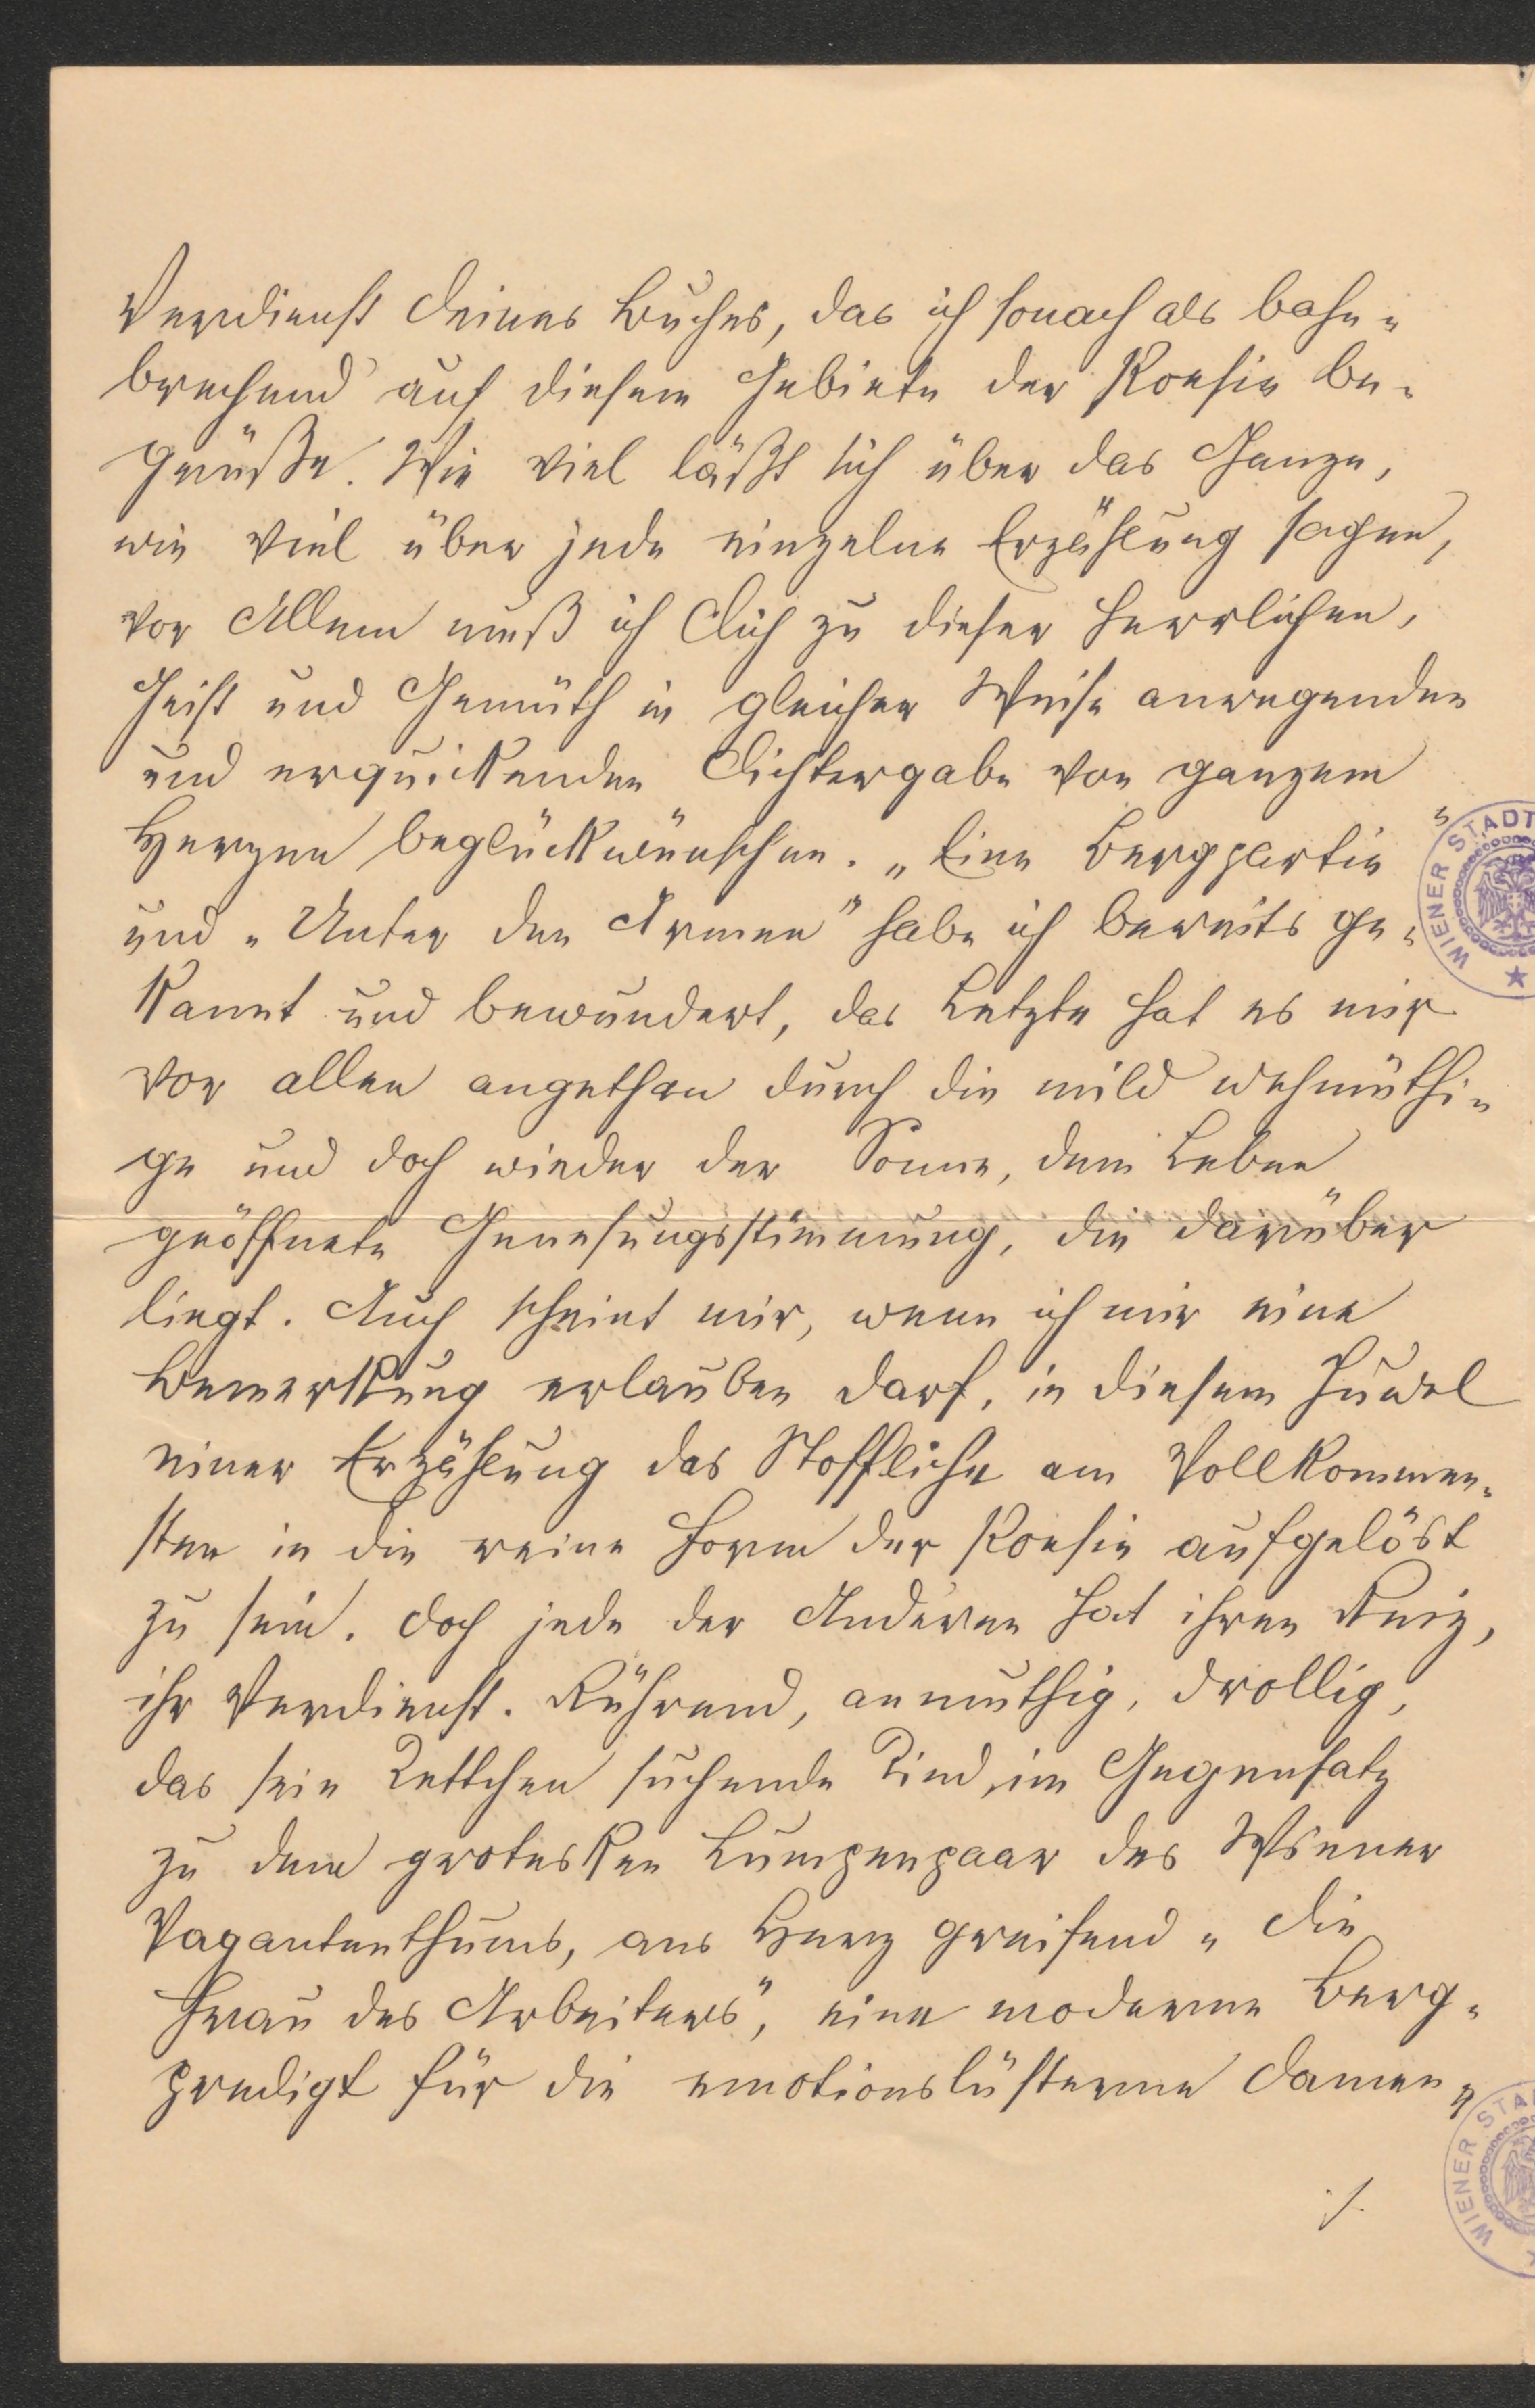 Verdienst Deines Buches, das ich sonach als bahn-
brechend auf diesem Gebiete der Poesie be-
grüße. Wie viel läßt sich über das Ganze,
wie viel über jede einzelne Erzählung sagen,
vor Allem muß ich Dich zu dieser herrlichen,
Geist und Gemüth in gleicher Weise anregenden
und erquickenden Dichtergabe von ganzem
Herzen beglückwünschen. „Eine Bergpartie"
und „Unter den Armen" habe ich bereits ge-
kannt und bewundert, das Letzte hat es mir
vor allen angethan durch die mild wehmüthi-
ge und doch wieder der Sonne, dem Leben
geöffnete Genesungsstimmung, die darüber
liegt. Auch scheint mir, wenn ich mir eine
Bemerkung erlauben darf, in diesem Juwel
einer Erzählung das Stoffliche am Vollkommen-
sten in die reine Form der Poesie aufgelöst
zu sein. Doch jede der Anderen hat ihren Reiz,
ihr Verdienst. Rührend, anmuthig, drollig,
das sein Bettchen suchende Kind, im Gegensatz
zu dem grotesken Lumpenpaar des Wiener
Vagantenthums, ans Herz greifend „Die
Frau des Arbeiters", eine moderne Berg-
predigt für die emotionslüsterne Damen-
./.
WIENER STADT
WIENER STA